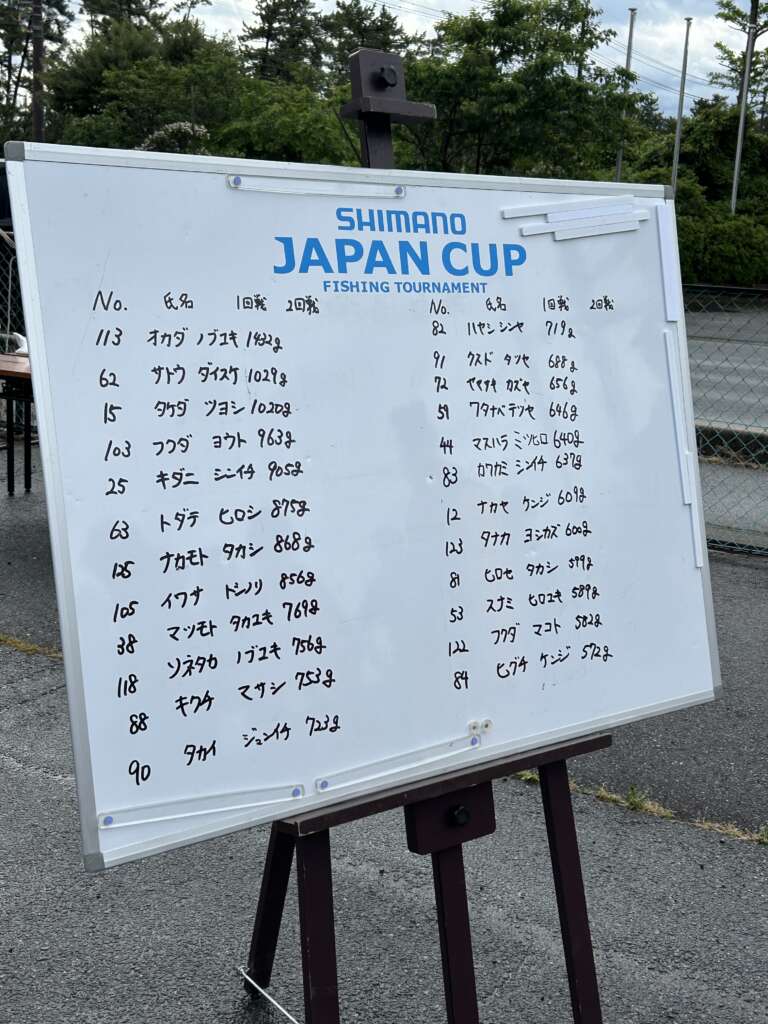 SHIMANO
JAPAN CUP
FISHING TOURNAMENT
No. 氏名 1回戦 2回戦
113 オカダ ノブユキ 1432g
62 サトウ ダイスケ 1029g
15 タケダ ツヨシ 1020g
103 フクダ ヨウト 963g
25 キダニ シンイチ 905g
63 トダテ ヒロシ 875g
125 ナカモト タカシ 868g
105 イワサ トシノリ 856g
38 マツモト タカユキ 769g
118 ソネタカ ノブユキ 756g
88 キクチ マサシ 753g
90 タカイ ジュンイチ 723g
No. 氏名 1回戦 2回戦
82 ハヤシ シンヤ 719g
91 クスド タツヤ 688g
72 ヤマザキ カズヤ 656g
59 ワタナベ テツヤ 646g
44 マスハラ ミツヒロ 640g
83 カワカミ シンイチ 637g
12 ナカヤ ケンジ 609g
123 タナカ ヨシカズ 600g
81 ヒロセ タカシ 599g
53 スナミ ヒロユキ 589g
122 フクダ マコト 582g
84 ヒグチ ケンジ 572g